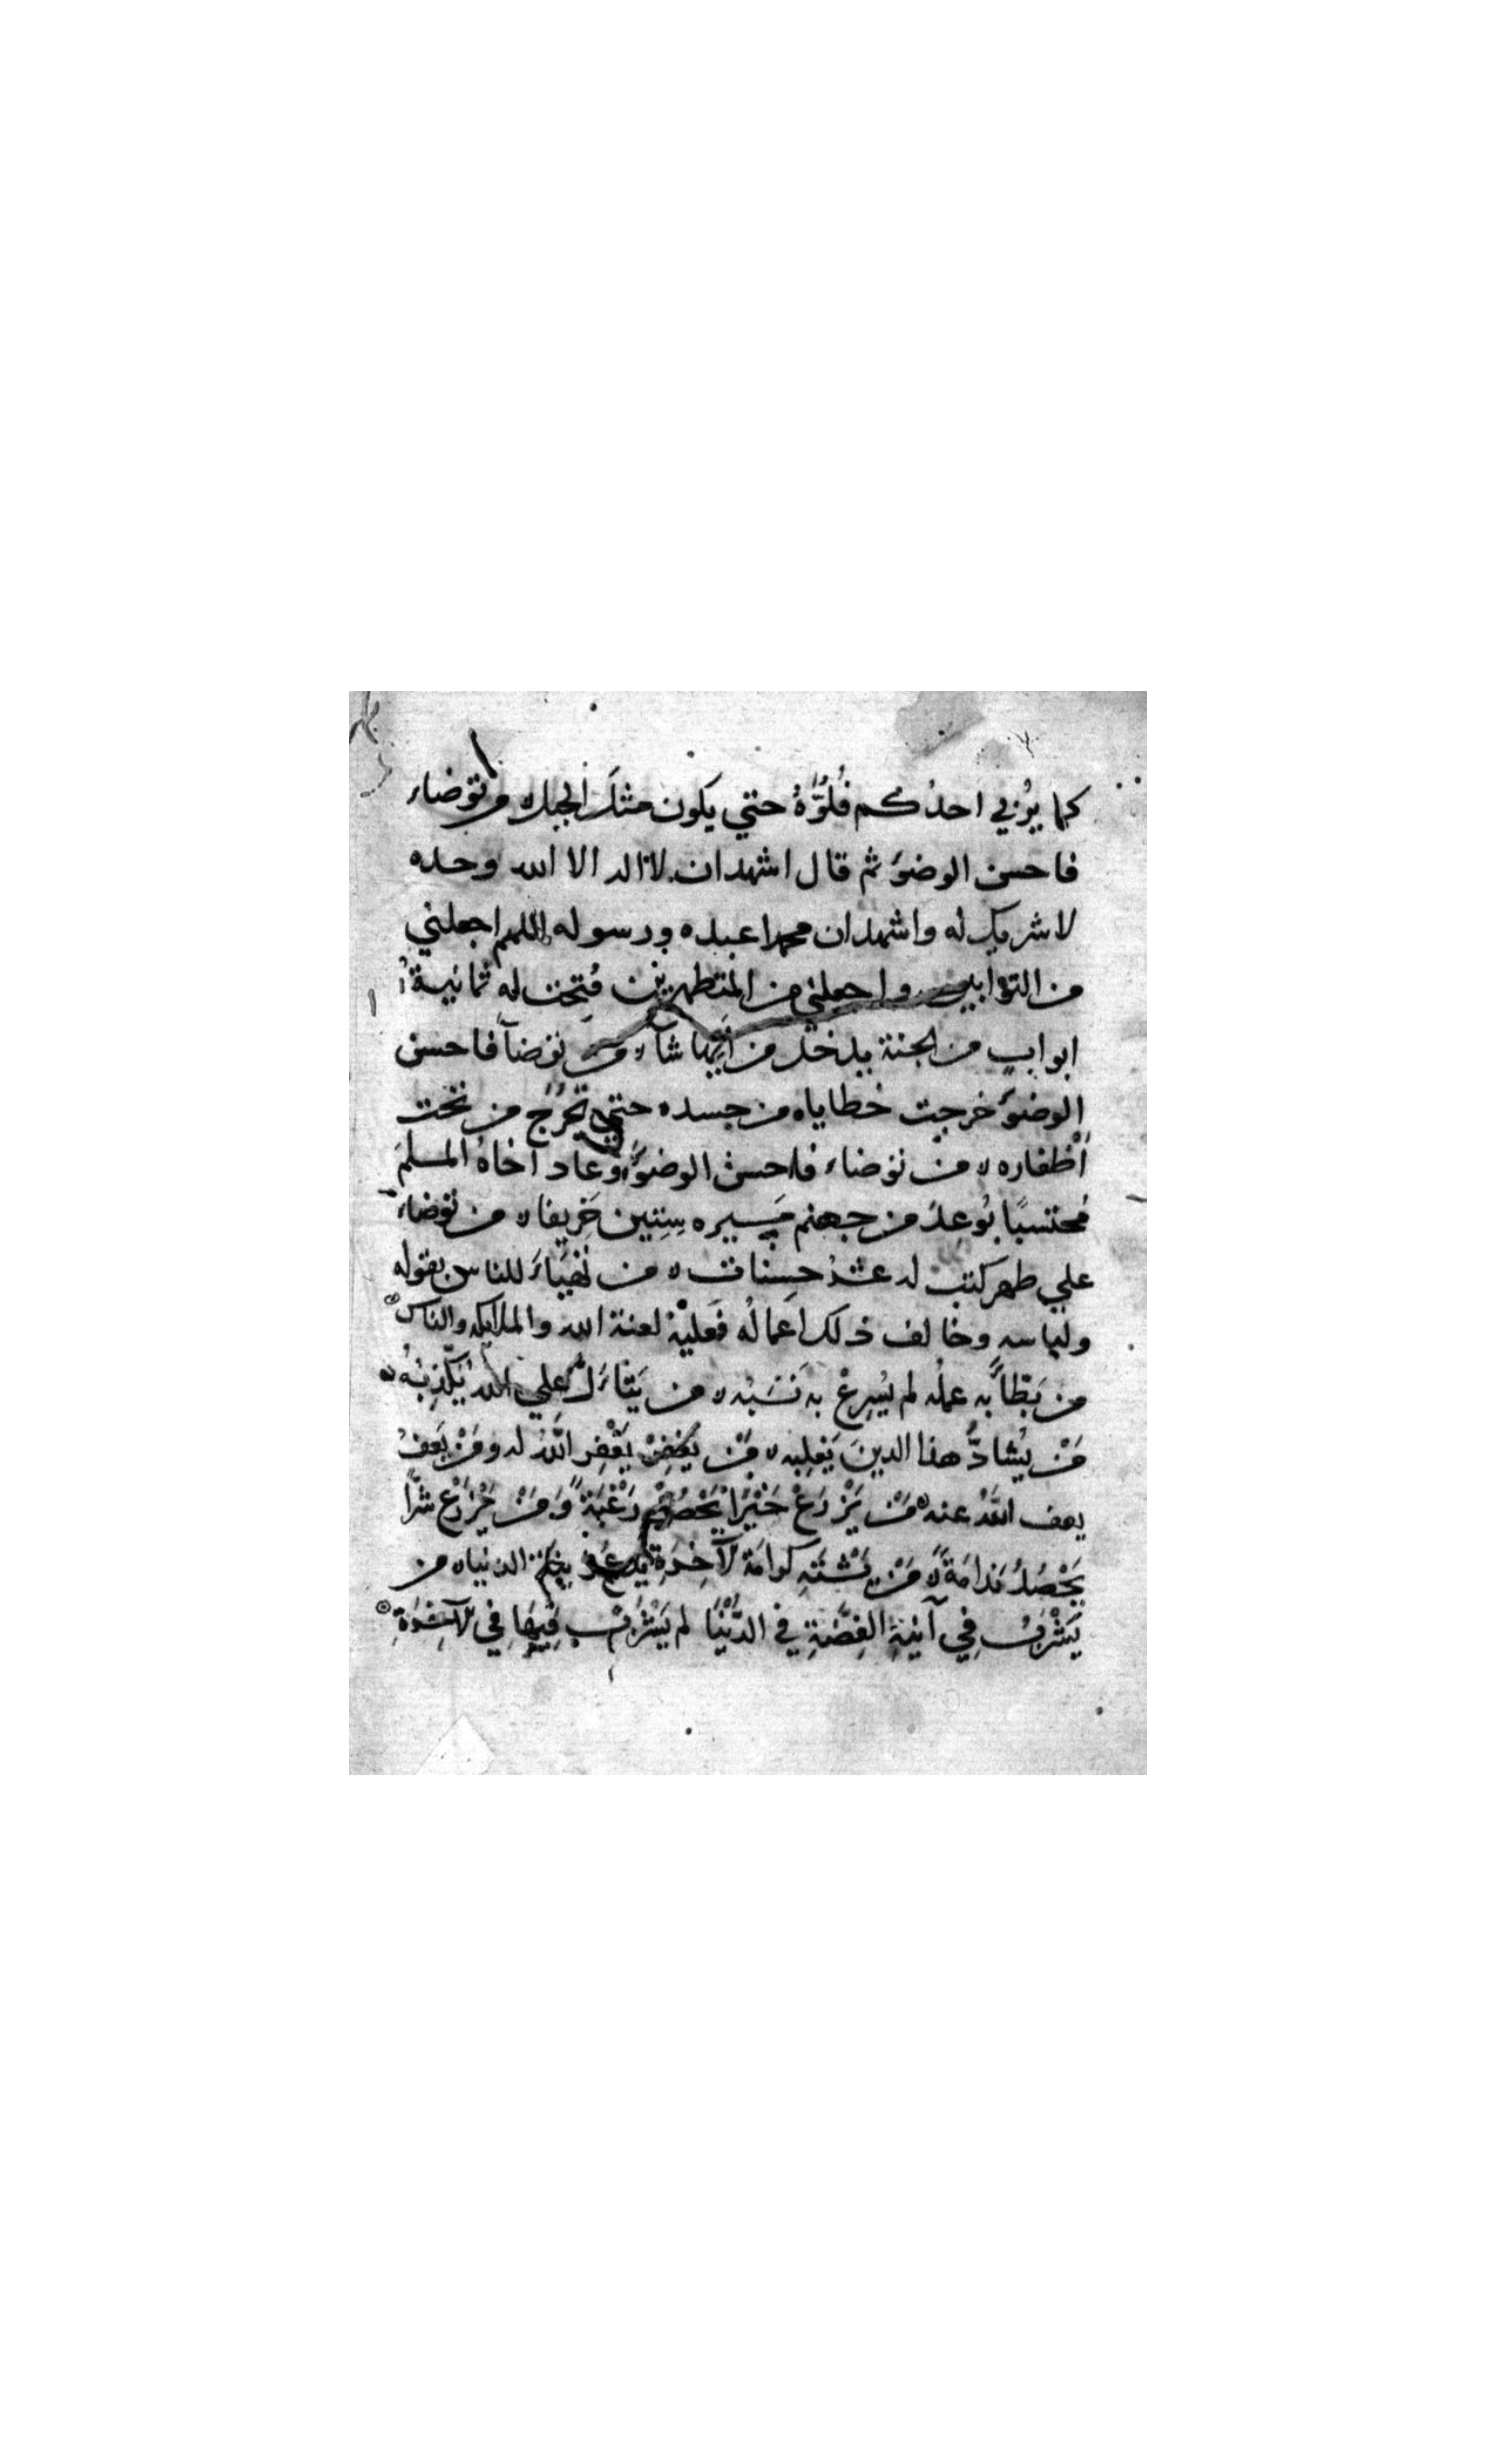 كما يُربي احدُكم فُلُوَّهُ حتي يكون مثل الجبل ه من توضاء
فاحسن الوضوَ ثم قال اشهد ان لا اله الا الله وحده
لا شريك له واشهد ان محمدا عبده ورسوله اللهم اجعلني
من التوابين واجعلني من المتطهرين فُتِحَت له ثمانيةُ
ابوابٍ من الجنة يدخل من أيِّها شآ ه من توضآ فاحسن
الوضوَ خرجت خطاياه من جسده حتي تَخْرُجَ من تحت
أظفاره ه من توضاء فاحسن الوضوَ وعاد اخاهُ المسلمَ
مُحتسبًا بُوعِدَ من جهنم مَسيره سِتين خَريفا ه من توضاء
علي طهر كتب له عشرُ حسِنات ه من تَهيّاءَ للناس بقوله
ولباسه وخالف ذلك اعمالُه فَعليْه لعنة الله والملايكه والناس
من بَطَّأَ به عملُه لم يُسرِعْ به نَسَبُه ه من يَتاءَلَّ علي الله يُكَذِّبْهُ
مَنْ يُشادَّ هذا الدينَ يَغلِبه ه مَنْ يَغْفِرْ يَغْفِرِ اللهُ له ومَنْ يَعفُ
يعف اللهُ عنه ه مَنْ يَزْرَعْ خَيْرًا يَحْصُدْ رَغْبَةً وَمَنْ يَزْرَعْ شرًّا
يَحْصُدْ نَدامَةً ه مَنْ يَشْتَهِ كرامَةَ الآخِرَةِ يَدَعْ زِينَةَ الدنيا ه من
يَشْرَبْ فِي آنِيَةِ الفِضَّةِ في الدُّنْيَا لم يَشْرَبْ فِيهَا فِي الآخِرَةِ